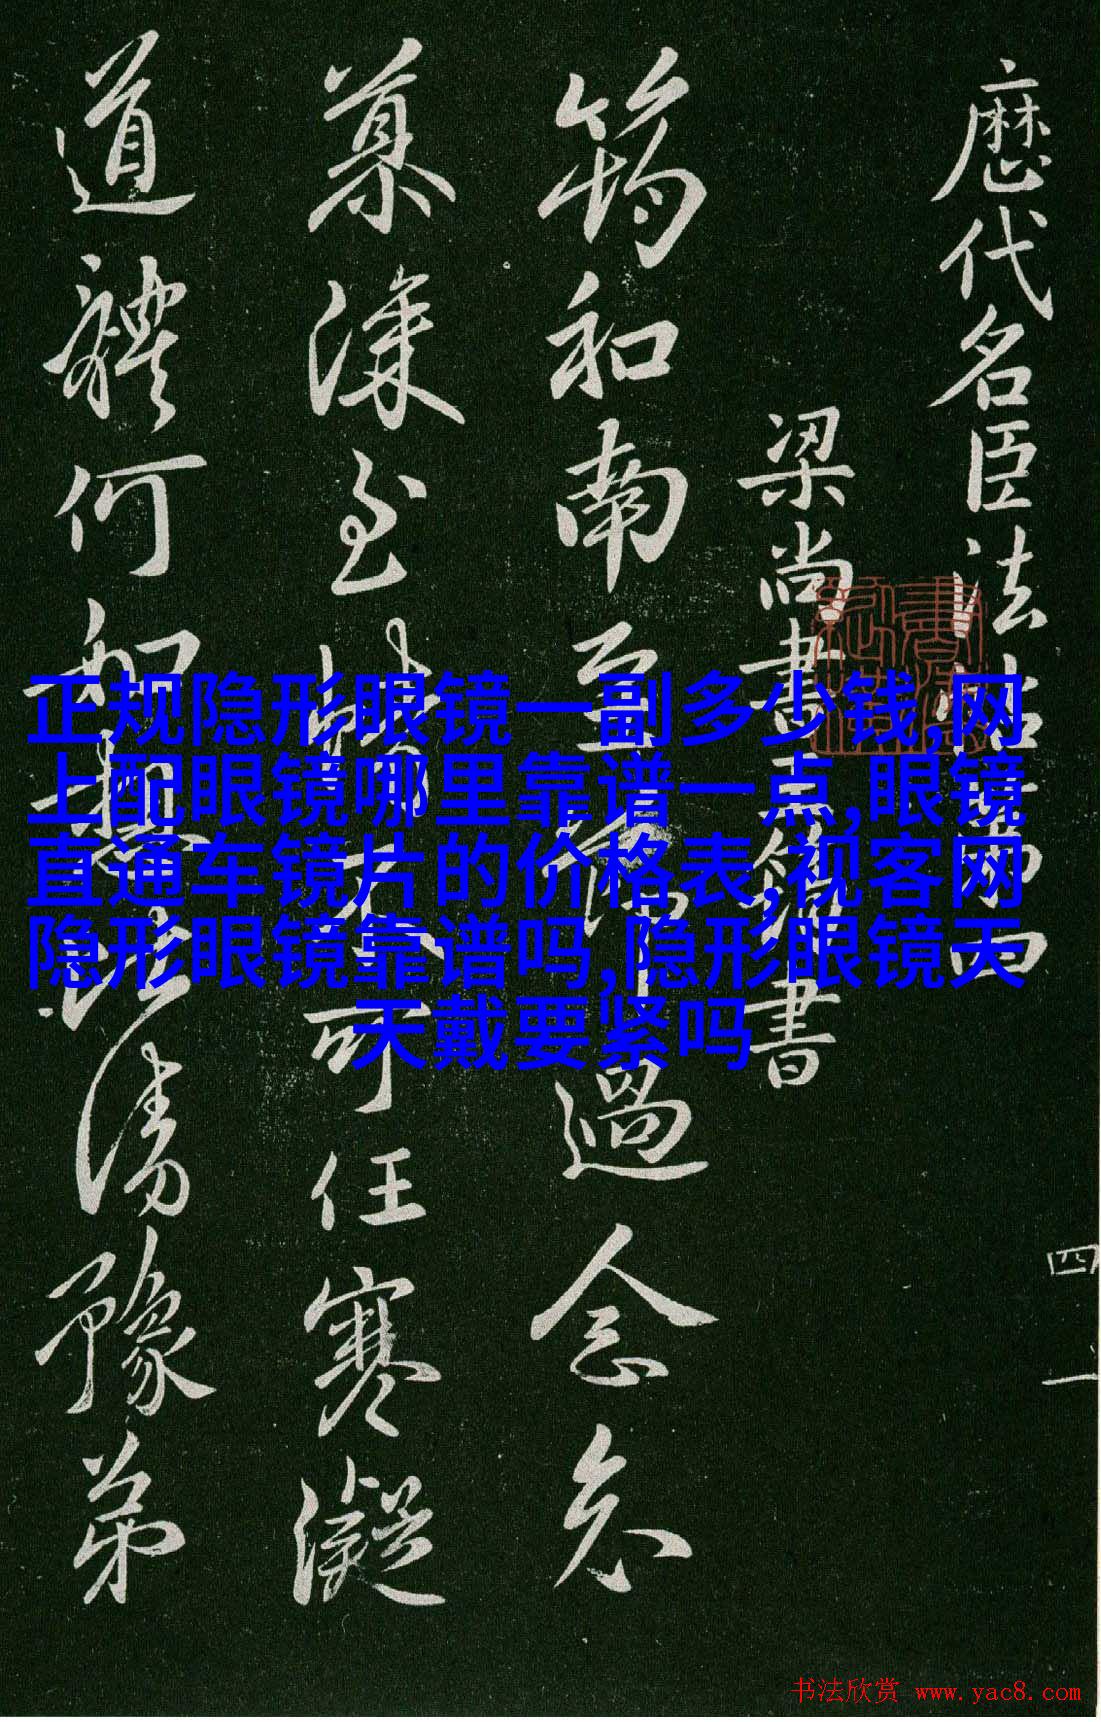 厯代名臣法帖第四
梁尚書王筠書
筠和南至節過念念
慕深至情不可任寒凝
道體何如想比清豫弟
四一
正规隐形眼镜一副多少钱,网
上配眼镜哪里靠谱一点,眼镜
直通车镜片的价格表,视客网
隐形眼镜靠谱吗,隐形眼镜天
天戴要紧吗
书法欣赏 www.yac8.com